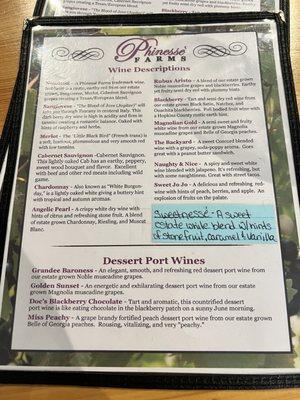 Phinesse
FARMS
Wine Descriptions
fruity dry red with plummy
Sangiovese - "The Blood of Jove (Jupiter)" will
take you through Tuscany in central Italy. This
dark berry, dry wine is high in acidity and firm in
tannins creating a romantic balance. Oaked with
hints of raspberry and herbs.
Merlot - The "Little Black Bird" (French trans) is
a soft, lustrous, plummy and very smooth red
with low tannins.
Cabernet Sauvignon - Cabernet Sauvignon.
This lightly oaked Cab has an earthy, peppery,
sweet wood bouquet and flavor. Excellent
with beef and other red meats including wild
game.
Chardonnay - Also known as "White Burgun-
day," is a lightly oaked white giving a buttery hint
with tropical and autumn aromas.
Angelic Pearl - A crispy white dry wine with
hints of citrus and refreshing stone fruit. A blend
of estate grown Chardonnay, Riesling, and Muscat
Blanc.
Rubus Aristo - A blend of our estate grown
Noble muscadine grapes and blackberries. Earthy
fruity dry red with plummy hints.
Blackberry - Tart and smoky wine from our
estate grown Black Satin, Natchez, and
Ouachita blackberries. Full bodied fruit wine with
a Hopkins County rustic earth hint.
Magnolian Gold - A semi sweet and fruity
white wine from our estate grown Magnolia
muscadine grapes and Belle of Georgia peaches.
The Backyard - A sweet Concord blended
wine with a grapey, soda-poppy aroma. Goes
great with a peanut butter sandwich.
Naughty & Nice - A spicy and sweet white
wine blended with jalapeno. It's refreshing, but
with some naughtiness. Great with sweet heat.
Sweet Jo Jo - A delicious and refreshing, red-
wine with hints of peach, berries, and apple. An
explosion of fruits on the palate.
Sweetnesse - A sweet
estate white blend w/hints
of stonefruit, caramel & Vanilla
Dessert Port Wines
Grandee Baroness - An elegant, smooth, and refreshing red dessert port wine from
our estate grown Noble muscadine grapes.
Golden Sunset - An energetic and exhilarating dessert port wine from our estate
grown Magnolia muscadine grapes.
Doc's Blackberry Chocolate - Tart and aromatic, this countrified dessert
port wine is like eating chocolate in the blackberry patch on a sunny June morning.
Miss Peachy - A grape brandy fortified peach dessert port wine from our estate grown
Belle of Georgia peaches. Rousing, vitalizing, and very "peachy."